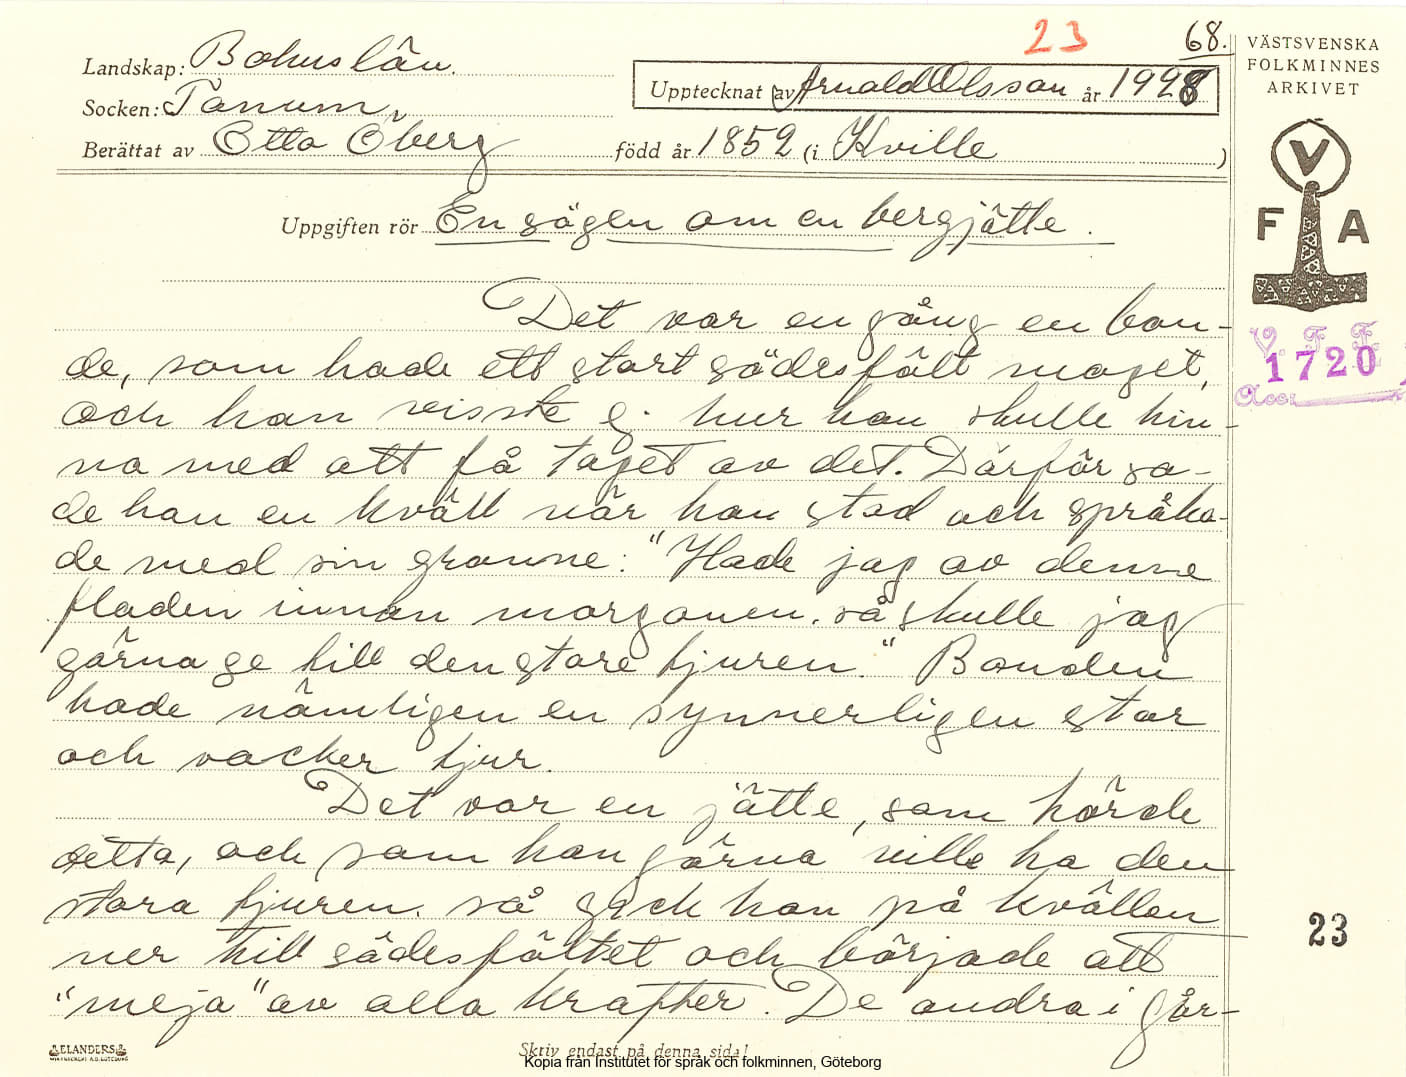 23
68.
Landskap: Bohuslän.
Upptecknat av Arnald Olsson år 1928
Socken: Tanum.
Berättat av Otto Öberg född år 1852 (i Kville )
Uppgiften rör En sägen om en bergjätte.
Det var en gång en bon-
de, som hade ett stort sädesfält moget,
och han visste ej hur han skulle hin-
na med att få taget av det. Därför sa-
de han en kväll när han stod och språka-
de med sin granne: "Hade jag av denne
fladen innan morgonen, så skulle jag
gärna ge till den store tjuren." Bonden
hade nämligen en synnerligen stor
och vacker tjur.
Det var en jätte, som hörde
detta, och som han gärna ville ha den
stora tjuren, så gick han på kvällen
ner till sädesfältet och började att
"meja" av alla krafter. De andra i går-
VÄSTSVENSKA
FOLKMINNES
ARKIVET
V
F A
V. F. F.
1720
Acc:
23
ELANDERS
Skriv endast på denna sida!
Kopia från Institutet för språk och folkminnen, Göteborg